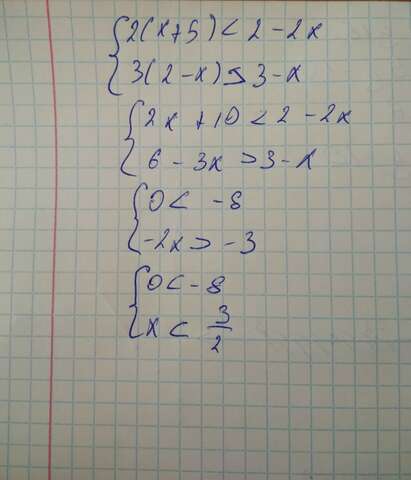 2(x+5) < 2 - 2x
3(2-x) > 3 - x
2x + 10 < 2 - 2x
6 - 3x > 3 - x
0 < -8
-2x > -3
0 < -8
x < 3/2